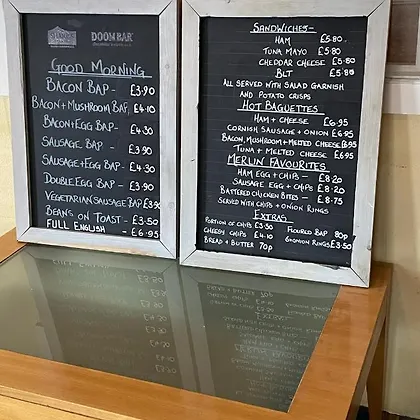 DOOM BAR
GOOD MORNING
BACON BAP - £3.90
BACON + MUSHROOM BAP, £4.10
BACON + EGG BAP - £4.30
SAUSAGE BAP - £3.90
SAUSAGE + EGG BAP - £4.30
DOUBLE EGG BAP - £3.90
VEGETARIAN SAUSAGE BAP £3.90
BEANS ON TOAST - £3.50
FULL ENGLISH - £6.95
SANDWICHES -
HAM £5.80
TUNA MAYO £5.80
CHEDDAR CHEESE £5.80
BLT £5.85
ALL SERVED WITH SALAD GARNISH
AND POTATO CRISPS
HOT BAGUETTES
HAM + CHEESE £6.95
CORNISH SAUSAGE + ONION £6.95
BACON, MUSHROOM + MELTED CHEESE £6.95
TUNA + MELTED CHEESE £6.95
MERLIN FAVOURITES
HAM EGG + CHIPS - £8.20
SAUSAGE EGG + CHIPS - £8.20
BATTERED CHICKEN BITES - £8.75
SERVED WITH CHIPS + ONION RINGS
EXTRAS
PORTION OF CHIPS £3.50 FLOURED BAP 80p
CHEESY CHIPS £4.10 6 ONION RINGS £3.50
BREAD + BUTTER 70p